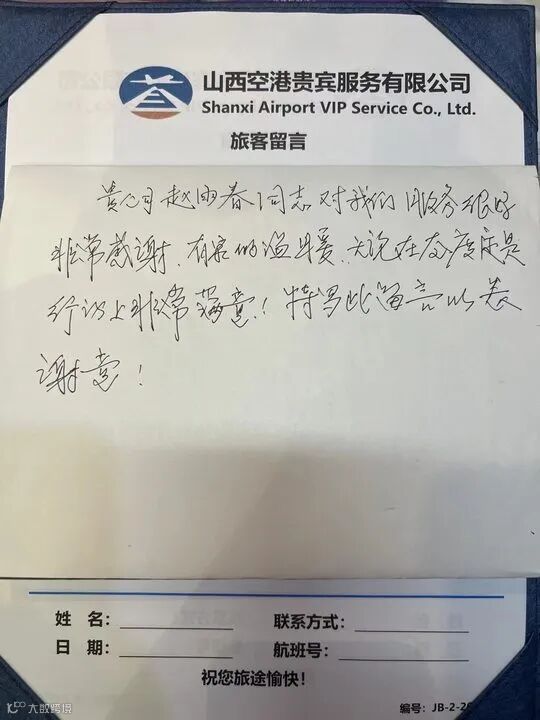 山西空港贵宾服务有限公司
Shanxi Airport VIP Service Co., Ltd.
旅客留言
贵公司赵雨春同志对我们服务很好
非常感谢、有家的温暖、无论在态度还是
行动上非常满意！特写此留言以表
谢意！
姓 名：
联系方式：
日 期：
航班号：
祝您旅途愉快！
编号：JB-2-20
大数跨境